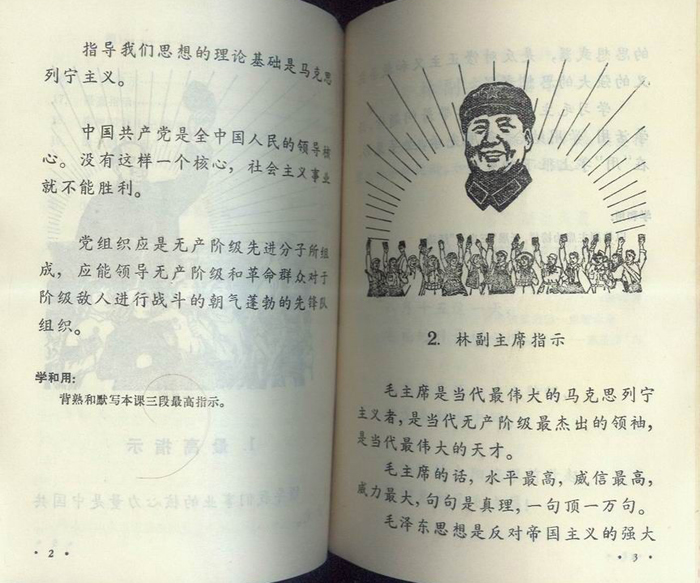 指导我们思想的理论基础是马克思
列宁主义。
中国共产党是全中国人民的领导核
心。没有这样一个核心，社会主义事业
就不能胜利。
党组织应是无产阶级先进分子所组
成，应能领导无产阶级和革命群众对于
阶级敌人进行战斗的朝气蓬勃的先锋队
组织。
学和用：
背熟和默写本课三段最高指示。
· 2 ·
2. 林副主席指示
毛主席是当代最伟大的马克思列宁
主义者，是当代无产阶级最杰出的领袖，
是当代最伟大的天才。
毛主席的话，水平最高，威信最高，
威力最大，句句是真理，一句顶一万句。
毛泽东思想是反对帝国主义的强大
· 3 ·